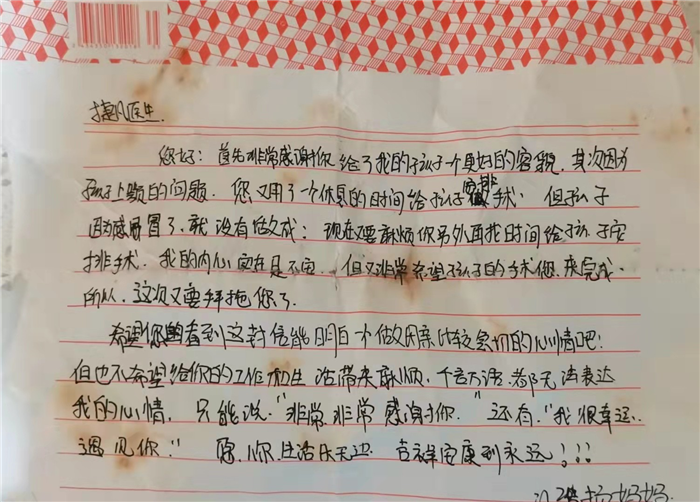 医生.
您好: 首先非常感谢你给了我的孩子一个更好的容貌, 其次因为
孩子上颚的问题. 您又用了一个休息的时间给孩子安排手术. 但孩子
因为感冒了, 就没有做成: 现在又要麻烦你另外再找时间给孩子安
排手术. 我的内心实在是不安. 但又非常希望孩子的手术您来完成.
所以, 这次又要拜托您了.
希望你看到这封信能明白一个做母亲比较急切的心情吧!
但也不希望给你的工作和生活带来麻烦, 千言万语都无法表达
我的心情, 只能说. "非常非常感谢你. "还有. "我很幸运.
遇见你." 愿, 你生活乐无边 吉祥安康到永远!!!
妈妈.